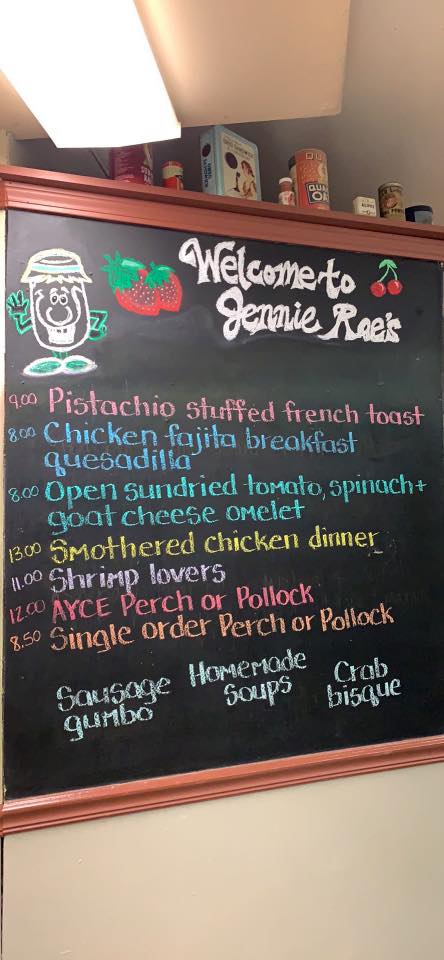 QUAKER
OATS
Welcome to
Jennie Rae's
9.00 Pistachio stuffed french toast
8.00 Chicken fajita breakfast
quesadilla
8.00 Open sundried tomato, spinach +
goat cheese omelet
13.00 Smothered chicken dinner
11.00 Shrimp lovers
12.00 AYCE Perch or Pollock
8.50 Single order Perch or Pollock
Sausage
gumbo
Homemade
soups
Crab
bisque